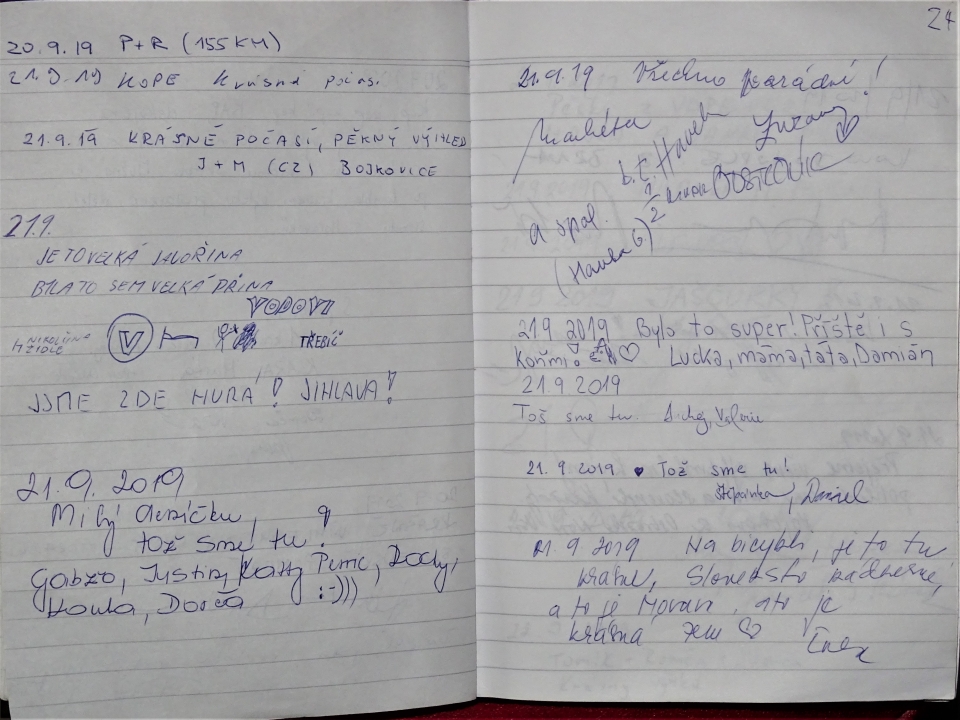 20.9.19 P+R (155KM)
21.9.19 KOPE Krásné počasí
21.9.19 KRÁSNÉ POČASÍ, PĚKNÝ VÝHLED
J+M (CZ) BOSKOVICE
21.9.
JE TO VELKÁ
BYLA TO SEM VELKÁ DŘINA
VODOVI
V
TŘEBÍČ
JSME ZDE HURÁ! JIHLAVA!
21.9.2019
Milý deníčku,
tož sme tu!
Gabzo, Justin, Katty, Dody,
Hanka, Dorča :-)))
24
21.9.19 Všechno parádní!
Markéta
b.č. Havel Zuzana
a spol. 1/2 BOSKOVIC
(Hanka G)
21.9.2019 Bylo to super! Příště i s
Koňmi! Lucka, máma, táta, Damián
21.9.2019
Toš sme tu. Valerie
21.9.2019 Tož sme tu!
Štěpánka, Daniel
21.9 2019 Na bicykli, je to tu
krásne, Slovensko nádherné,
a to je Morava, a to je
krásná zem